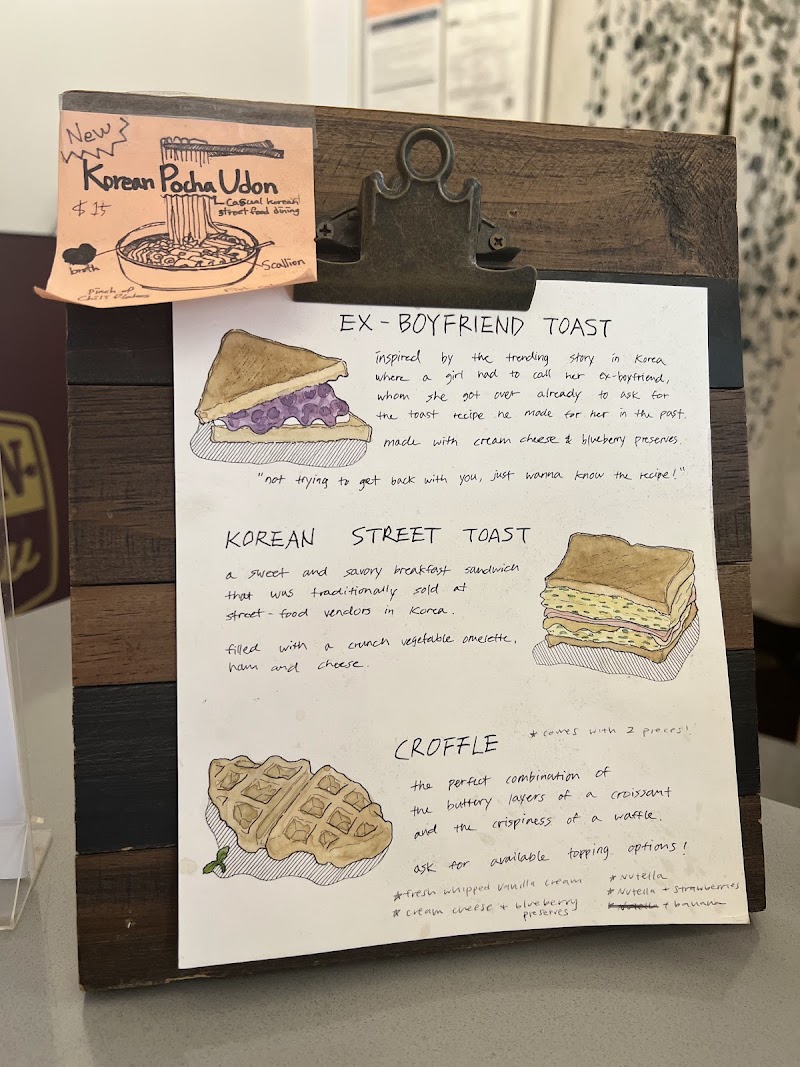 New
Korean Pocha Udon
$15
Casual Korean
street food dining
broth
Scallion
Pinch of
Chili Flakes
EX-BOYFRIEND TOAST
inspired by the trending story in Korea
where a girl had to call her ex-boyfriend,
whom she got over already to ask for
the toast recipe he made for her in the past.
made with cream cheese & blueberry preserves.
"not trying to get back with you, just wanna know the recipe!"
KOREAN STREET TOAST
a sweet and savory breakfast sandwich
that was traditionally sold at
street-food vendors in Korea.
filled with a crunch vegetable omelette,
ham and cheese.
CROFFLE
*comes with 2 pieces!
the perfect combination of
the buttery layers of a croissant
and the crispiness of a waffle.
ask for available topping options!
*fresh whipped vanilla cream
*cream cheese + blueberry
preserves
*Nutella
*Nutella + strawberries
*Nutella + banana